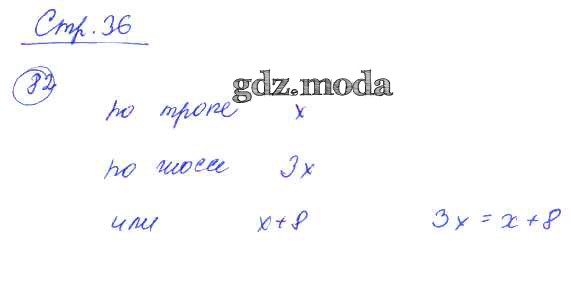 Стр. 36
82
gdz.moda
по тропе x
по шоссе 3x
или x+8 3x = x+8